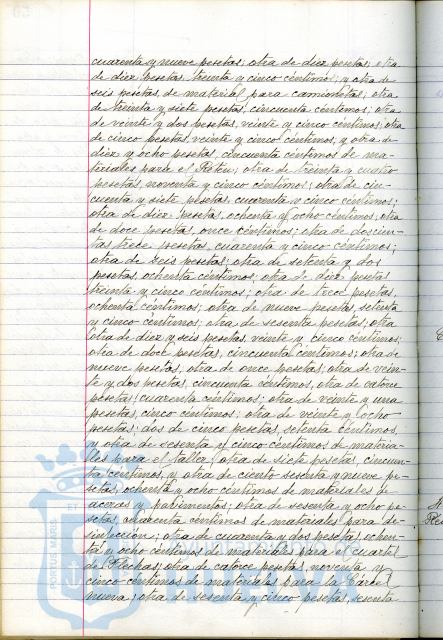 cuarenta y nueve pesetas; otra de diez pesetas; otra
de diez pesetas, treinta y cinco céntimos; y otra de
seis pesetas, de material para camionetas; otra
de treinta y siete pesetas, cincuenta céntimos; otra
de veinte y dos pesetas, veinte y cinco céntimos; otra
de cinco pesetas, veinte y cinco céntimos, y otra de
diez y ocho pesetas, cincuenta céntimos de ma-
teriales para el; otra de treinta y cuatro
pesetas, noventa y cinco céntimos; otra de cin-
cuenta y siete pesetas, cuarenta y cinco céntimos;
otra de diez pesetas, ochenta y ocho céntimos; otra
de doce pesetas, once céntimos; otra de doscien-
tas trece pesetas, cuarenta y cinco céntimos;
otra de seis pesetas; otra de setenta y dos
pesetas, ochenta céntimos; otra de diez pesetas
treinta y cinco céntimos; otra de trece pesetas,
ochenta céntimos; otra de nueve pesetas, setenta
y cinco céntimos; otra de sesenta pesetas; otra
otra de diez y seis pesetas, veinte y cinco céntimos;
otra de doce pesetas, cincuenta céntimos; otra de
nueve pesetas, otra de once pesetas; otra de vein-
te y dos pesetas, cincuenta céntimos, otra de catorce
pesetas, cuarenta céntimos; otra de veinte y una
pesetas, cinco céntimos; otra de veinte y ocho
pesetas; dos de cinco pesetas, setenta céntimos,
y otra de sesenta y cinco céntimos de materia-
les para el taller; otra de siete pesetas, cincuen-
ta céntimos, y otra de ciento sesenta y nueve pe-
setas, ochenta y ocho céntimos de materiales de
aceras y pavimentos; otra de sesenta y ocho pe-
setas, cuarenta céntimos de materiales para de-
sinfección; otra de cuarenta y dos pesetas, ochen-
ta y ocho céntimos de materiales para el cuartel
de Flechas; otra de catorce pesetas, noventa y
cinco céntimos de materiales para la Cárcel
nueva; otra de sesenta y cinco pesetas, sesenta
PORTUS MARIS
ET